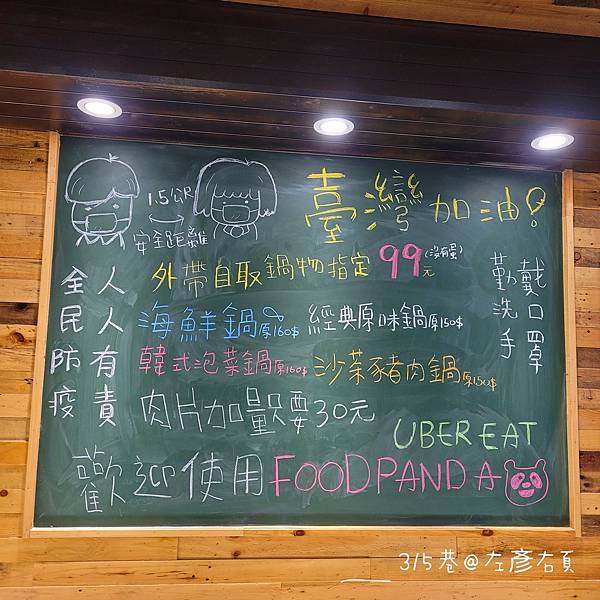 1.5公尺
安全距離
臺灣加油!
外帶自取鍋物指定99元(沒有蛋)
海鮮鍋原160$ 經典原味鍋原150$
韓式泡菜鍋原160$ 沙茶豬肉鍋原150$
肉片加量只要30元
全民防疫
人人有責
戴口罩
勤洗手
UBER EAT
歡迎使用FOODPANDA
315巷@左彥右頁